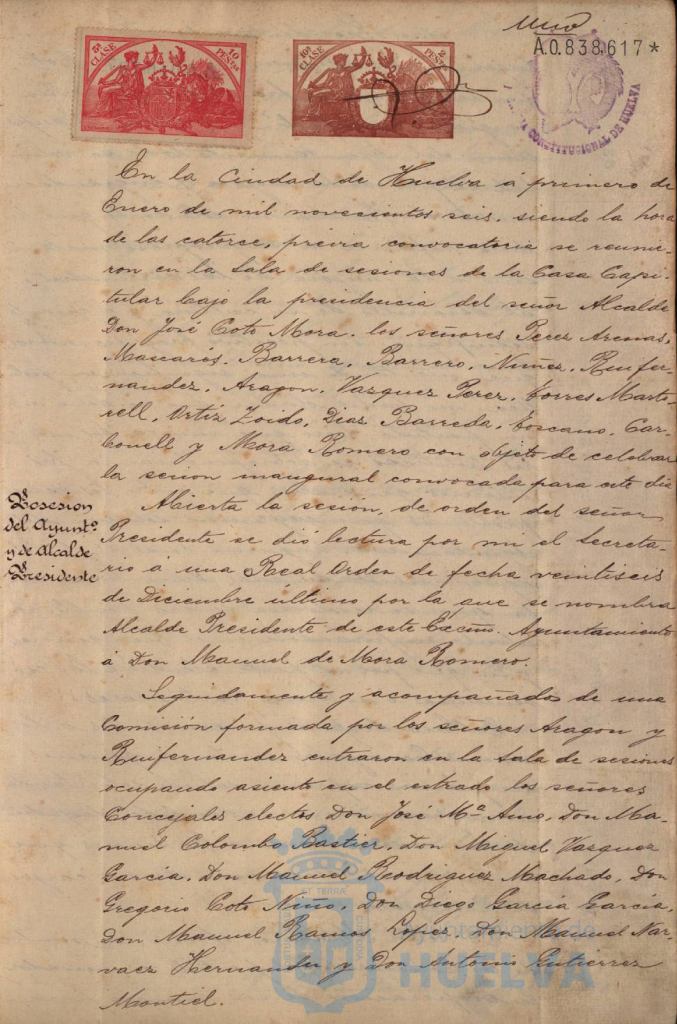 Uno
A.0.838,617*
5ª CLASE 10 PESTAS
10ª CLASE 2 PESTAS
CONSTITUCIONAL DE HUELVA
En la Ciudad de Huelva á primero de
Enero de mil novecientos seis, siendo la hora
de las catorce, previa convocatoria se reunie-
ron en la Sala de sesiones de la Casa Capi-
tular bajo la presidencia del señor Alcalde
Don José Coto Mora, los señores Perez Arenas,
Mascarós, Barrera, Barrero, Nuñez, Ruifer-
nandez, Aragon, Vazquez Perez, Torres Marto-
rell, Ortiz Zoido, Diaz Barreda, Toscano, Car-
bonell y Mora Romero con objeto de celebrar
la sesion inaugural convocada para este dia
Posesion
del Ayuntº
y de Alcalde
Presidente
Abierta la sesión, de orden del señor
Presidente se dió lectura por mi el Secreta-
rio á una Real Orden de fecha veintiseis
de Diciembre último por la que se nombra
Alcalde Presidente de este Excmo. Ayuntamiento
á Don Manuel de Mora Romero.
Seguidamente y acompañados de una
Comisión formada por los señores Aragon y
Ruifernandez entraron en la Sala de sesiones
ocupando asiento en el estrado los señores
Concejales electos Don José Mª Amo, Don Ma-
nuel Colombo Bastier, Don Miguel Vazquez
Garcia, Don Manuel Rodriguez Machado, Don
Gregorio Coto Niño, Don Diego Garcia Garcia,
Don Manuel Ramos Lopez, Don Manuel Nar-
vaez Hernandez y Don Antonio Gutierrez
Montiel.
Ayuntamiento de
HUELVA